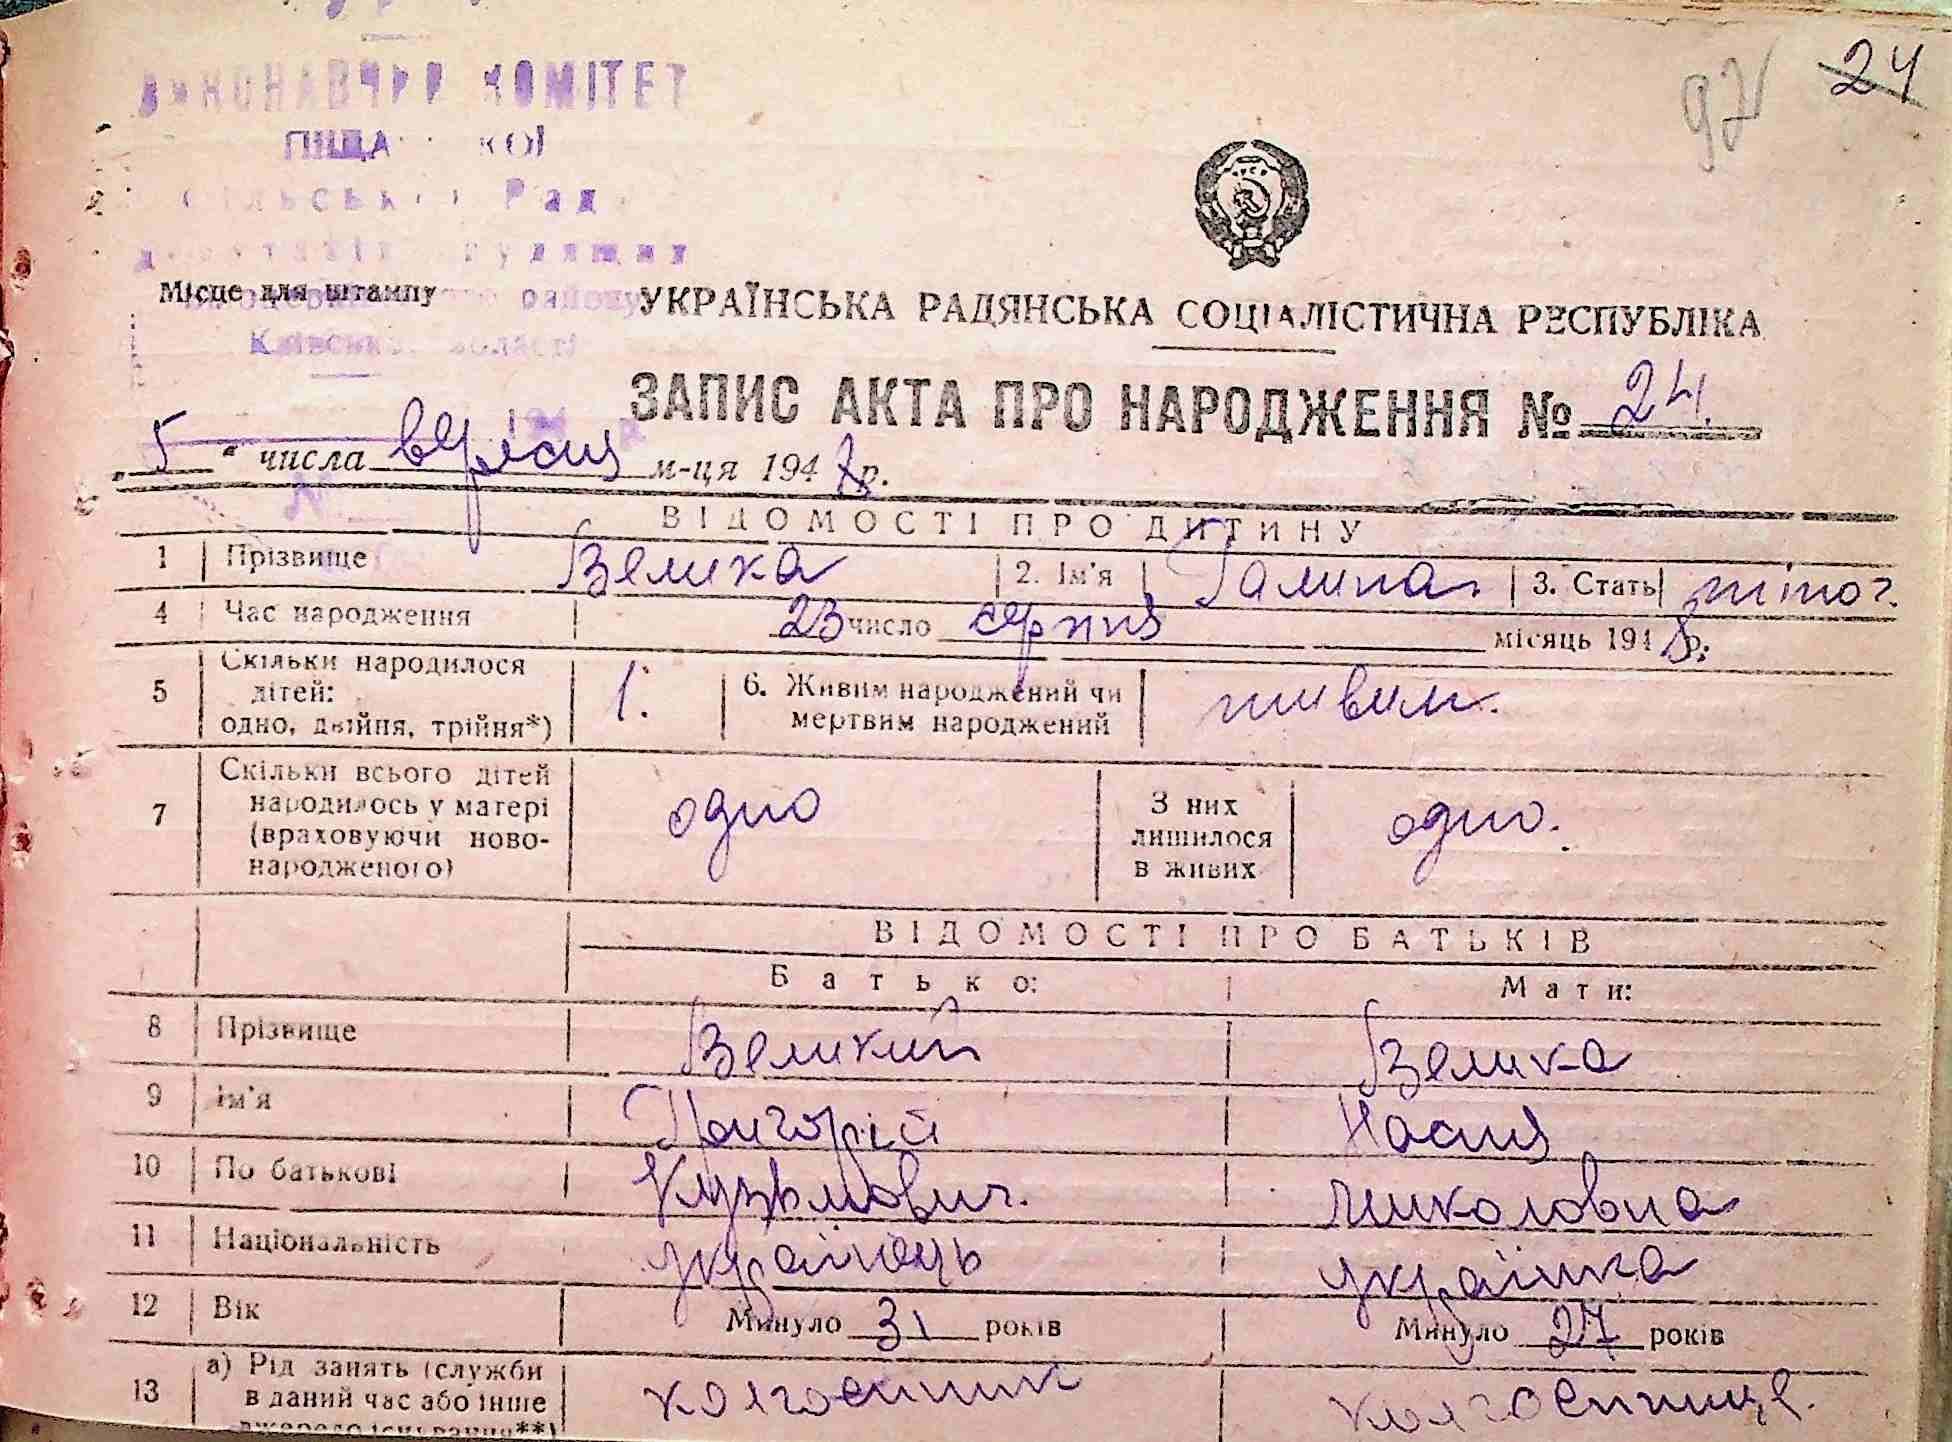 КОМІТЕТ
92 24
Рад
Місце для штампу
району
УКРАЇНСЬКА РАДЯНСЬКА СОЦІАЛІСТИЧНА РЕСПУБЛІКА
ЗАПИС АКТА ПРО НАРОДЖЕННЯ № 24.
„5“ числа вересня м-ця 194 р.
ВІДОМОСТІ ПРО ДИТИНУ
1 Прізвище Велика 2. Ім'я Галина 3. Стать жіноч.
4 Час народження 23 число серпня місяць 1948 р.
5 Скільки народилося
дітей:
одно, двійня, трійня*) 1. 6. Живим народжений чи
мертвим народжений живим.
7 Скільки всього дітей
народилось у матері
(враховуючи ново-
народженого) одно З них
лишилося
в живих одно.
ВІДОМОСТІ ПРО БАТЬКІВ
Батько: Мати:
8 Прізвище Великий Велика
9 Ім'я Григорій Настя
10 По батькові Кузьмович. Миколовна
11 Національність українець українка
12 Вік Минуло 31 років Минуло 27 років
13 а) Рід занять (служби
в даний час або інше
джерело існування**) колгоспник колгоспниця.